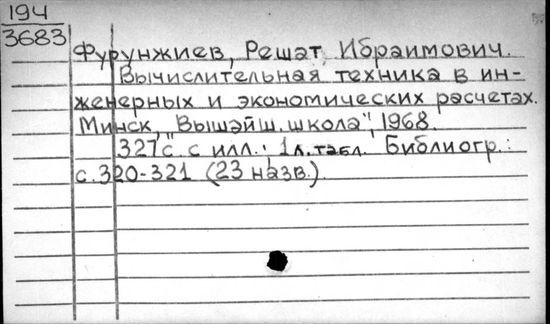 194
3683
Фурунжиев, Решат Ибраимович.
Вычислительная техника в ин-
женерных и экономических расчетах.
Минск, "Вышэйш. школа", 1968.
327 с. с илл.; 1 л. табл. Библиогр.:
с. 320-321 (23 назв.).